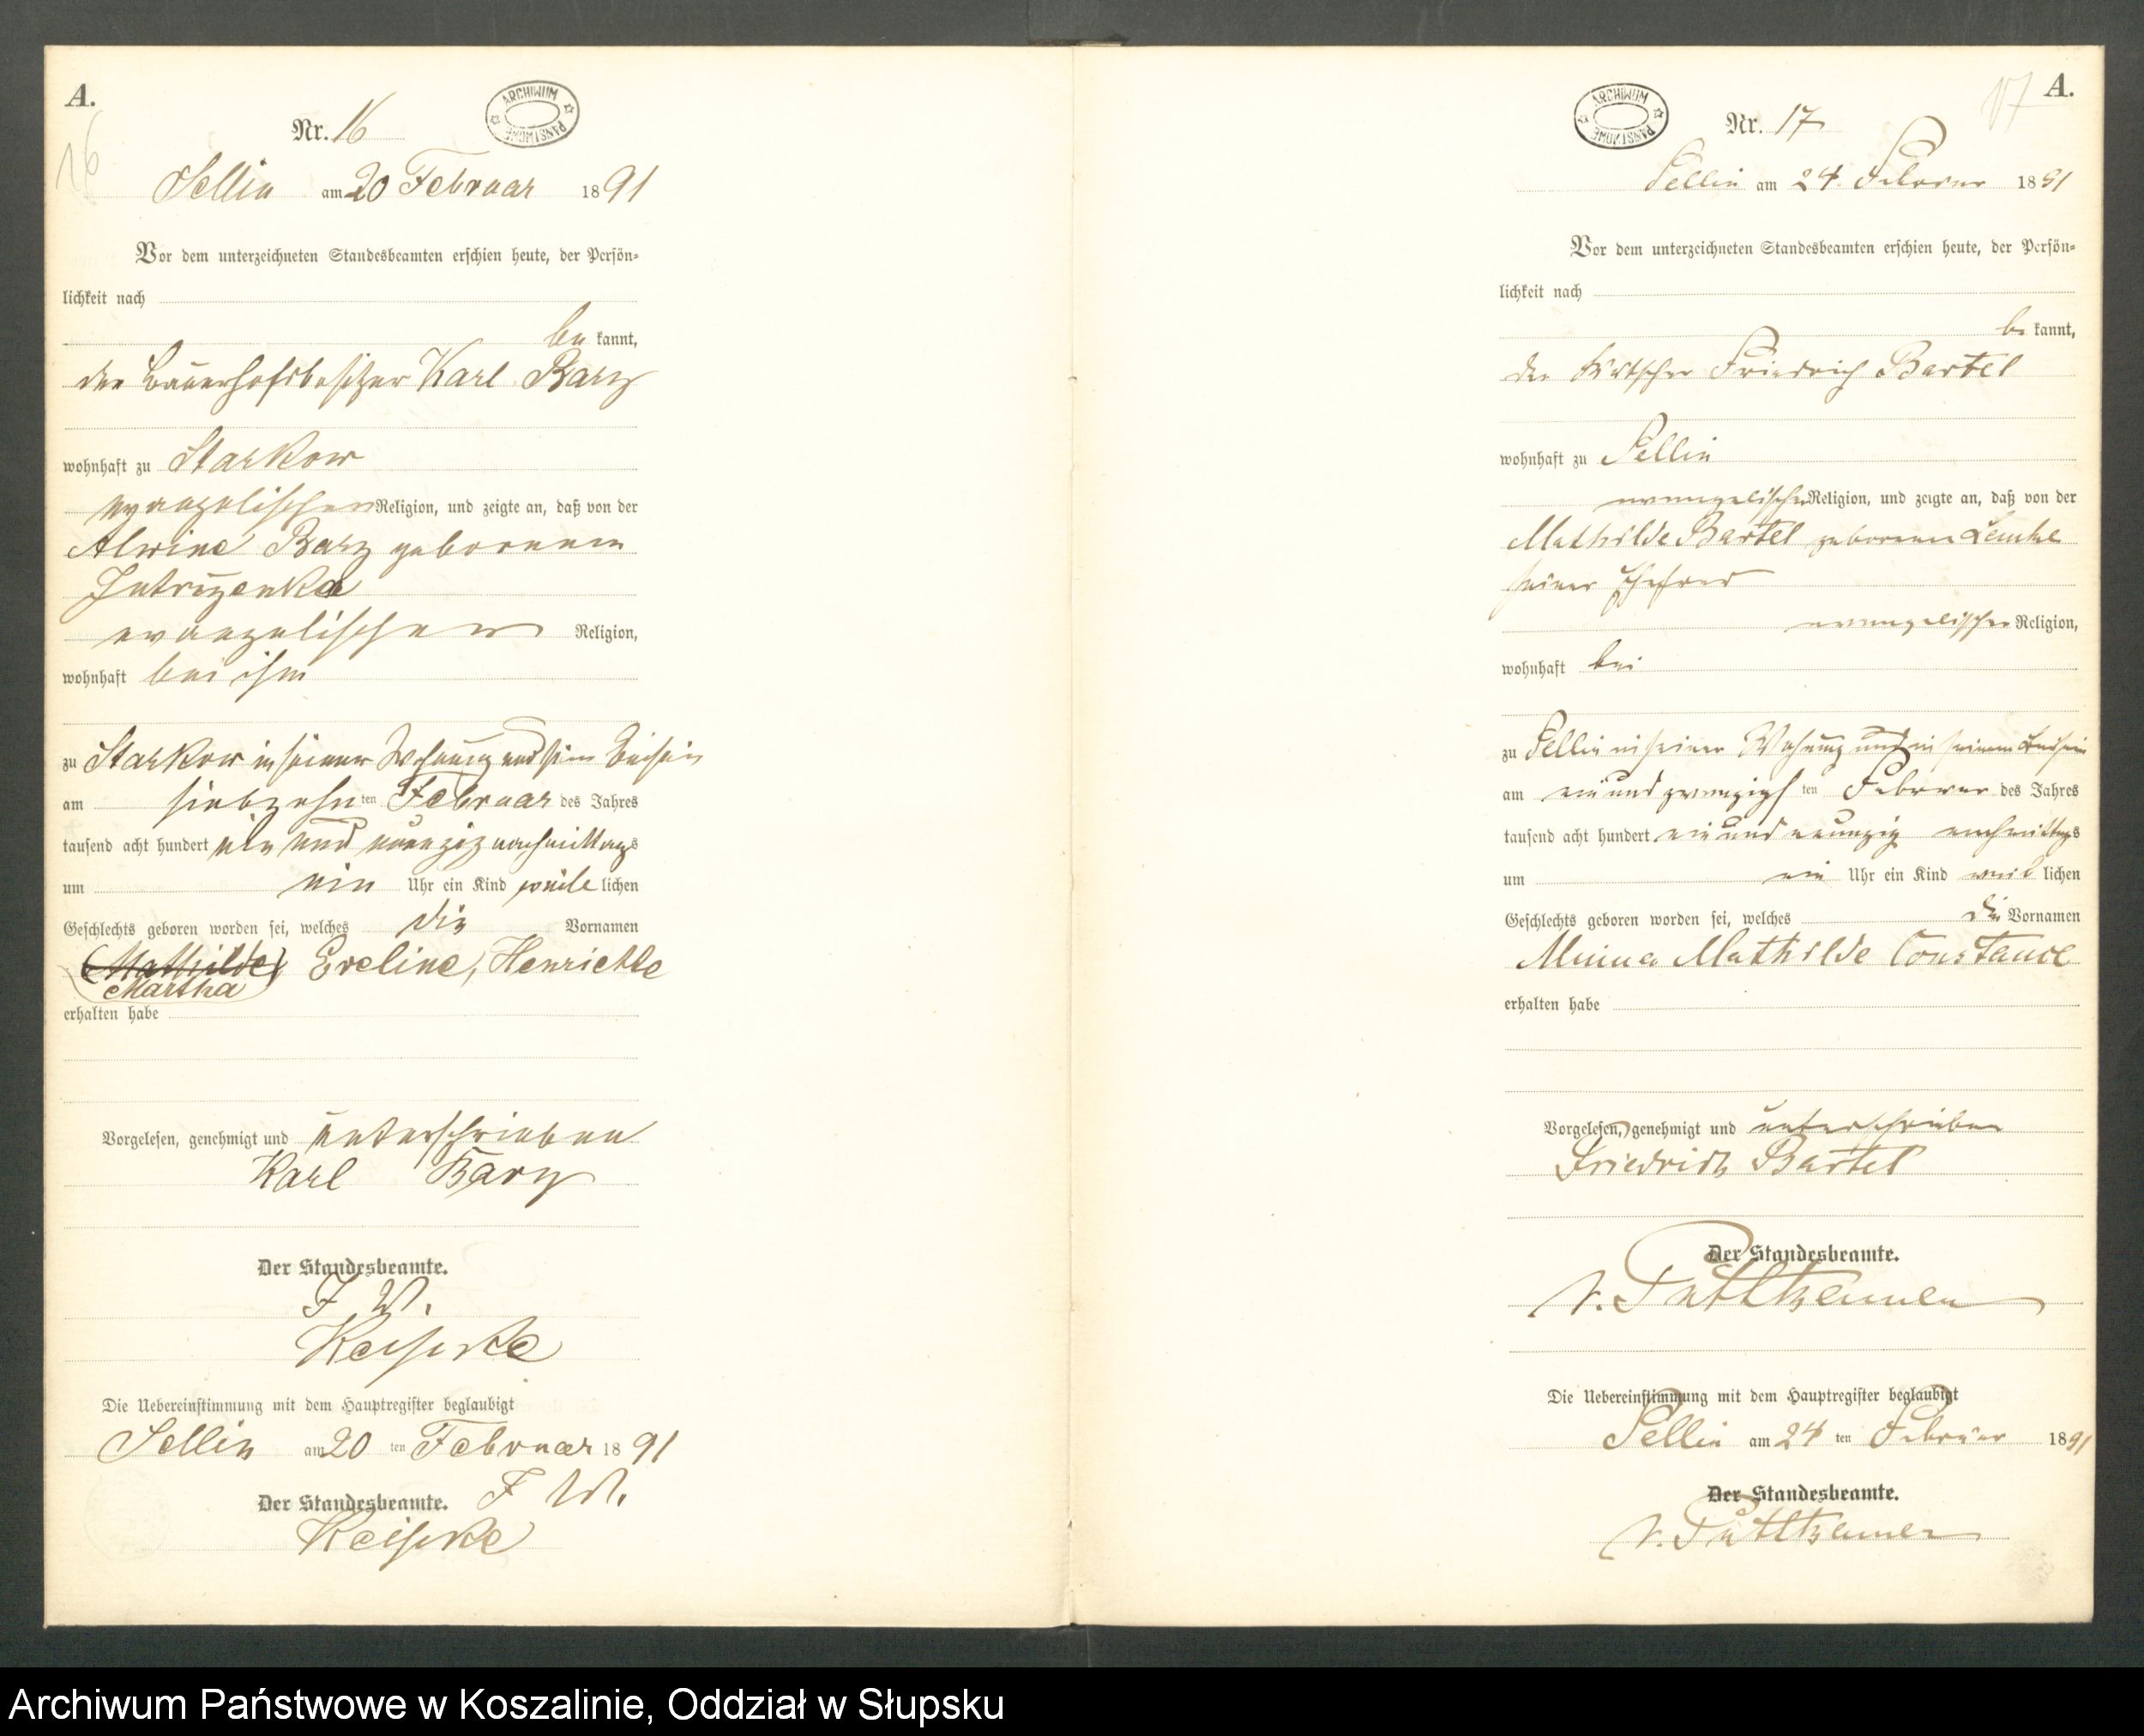 A.
16
Nr. 16
ARCHIWUM PAŃSTWOWE
Sellin am 20 Februar 1891
Vor dem unterzeichneten Standesbeamten erschien heute, der Persön-
lichkeit nach
be kannt,
der Bauerhofsbesitzer Karl Barz
wohnhaft zu Starkow
evangelischer Religion, und zeigte an, daß von der
Alwine Barz geborenen
evangelischer Religion,
wohnhaft bei ihm
zu Starkow in seiner Wohnung und Beisein
am siebzehn ten Februar des Jahres
tausend acht hundert ein und neunzig nachmittags
um ein Uhr ein Kind weib lichen
Geschlechts geboren worden sei, welches die Vornamen
(Mathilde) Eveline, Henriette
Martha
erhalten habe
Vorgelesen, genehmigt und unterschrieben
Karl Barz
Der Standesbeamte.
J. W.
Die Uebereinstimmung mit dem Hauptregister beglaubigt
Sellin am 20 ten Februar 1891
Der Standesbeamte. J. W.
A.
17
Nr. 17
ARCHIWUM PAŃSTWOWE
Sellin am 24. Februar 1891
Vor dem unterzeichneten Standesbeamten erschien heute, der Persön-
lichkeit nach
be kannt,
der Kutscher Friedrich Bartel
wohnhaft zu Sellin
evangelischer Religion, und zeigte an, daß von der
Mathilde Bartel geborenen Lemke
seiner Ehefrau
evangelischer Religion,
wohnhaft bei
zu Sellin in seiner Wohnung und in seinem Beisein
am ein und zwanzigs ten Februar des Jahres
tausend acht hundert ein und neunzig nachmittags
um ein Uhr ein Kind weib lichen
Geschlechts geboren worden sei, welches die Vornamen
Minna Mathilde Constance
erhalten habe
Vorgelesen, genehmigt und unterschrieben
Friedrich Bartel
Der Standesbeamte.
v. Puttkamer
Die Uebereinstimmung mit dem Hauptregister beglaubigt
Sellin am 24 ten Februar 1891
Der Standesbeamte.
v. Puttkamer
Archiwum Państwowe w Koszalinie, Oddział w Słupsku